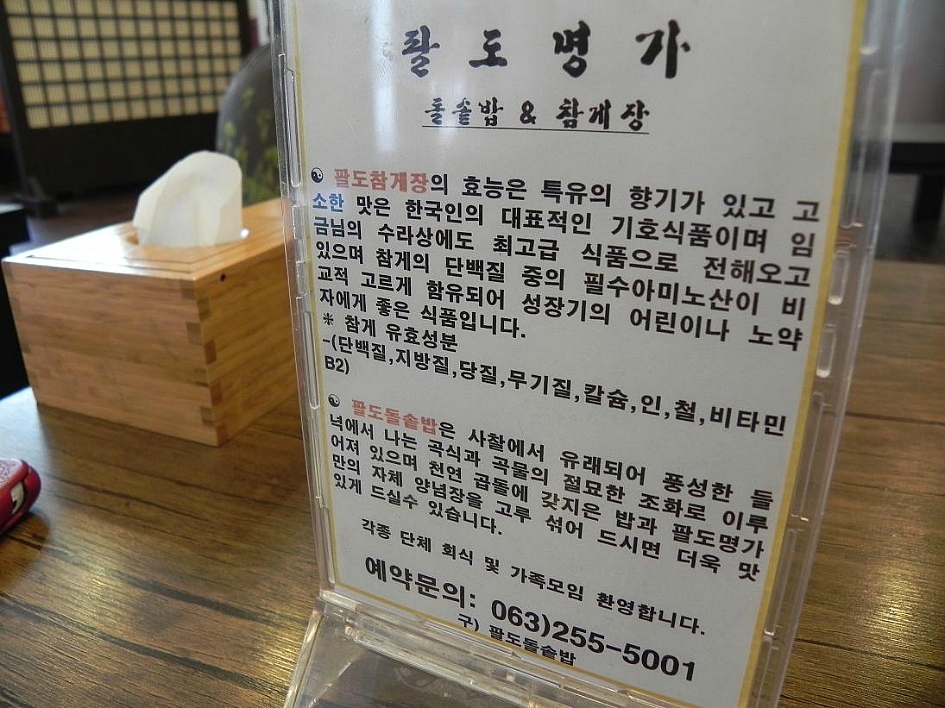 팔도명가
돌솥밥 & 참게장
팔도참게장의 효능은 특유의 향기가 있고 고
소한 맛은 한국인의 대표적인 기호식품이며 임
금님의 수라상에도 최고급 식품으로 전해오고
있으며 참게의 단백질 중의 필수아미노산이 비
교적 고르게 함유되어 성장기의 어린이나 노약
자에게 좋은 식품입니다.
※ 참게 유효성분
-(단백질,지방질,당질,무기질,칼슘,인,철,비타민
B2)
팔도돌솥밥은 사찰에서 유래되어 풍성한 들
녘에서 나는 곡식과 곡물의 절묘한 조화로 이루
어져 있으며 천연 곱돌에 갖지은 밥과 팔도명가
만의 자체 양념장을 고루 섞어 드시면 더욱 맛
있게 드실수 있습니다.
각종 단체 회식 및 가족모임 환영합니다.
예약문의: 063)255-5001
구) 팔도돌솥밥